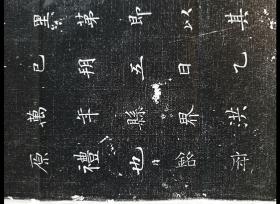 里弟即以其
已朔五日乙
萬年縣界洪
原禮也銘